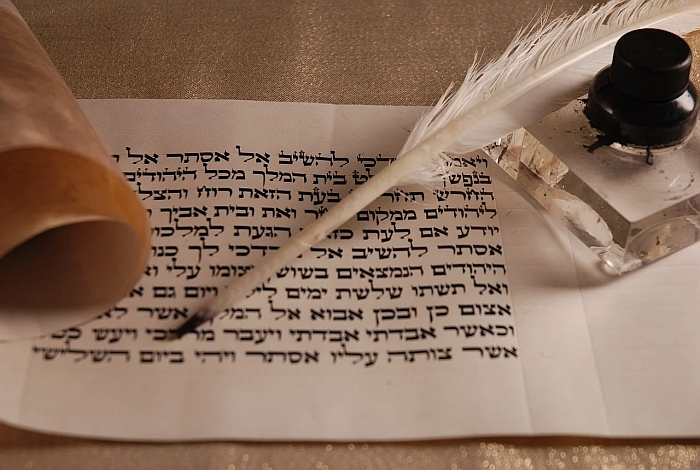 להשיב אל אסתר אל
בנפשך בית המלך מכל היהודים
החרש בעת הזאת רוח
ליהודים ממקום ואת ובית אביך
יודע אם לעת הגעת
אסתר להשיב אל מרדכי לך
היהודים הנמצאים וצומו עלי
ואל תשתו שלשת ימים לילה ויום גם
אצום כן ובכן אבוא אל המלך אשר לא
וכאשר אבדתי אבדתי ויעבר מרדכי ויעש
אשר צותה עליו אסתר ויהי ביום השלישי